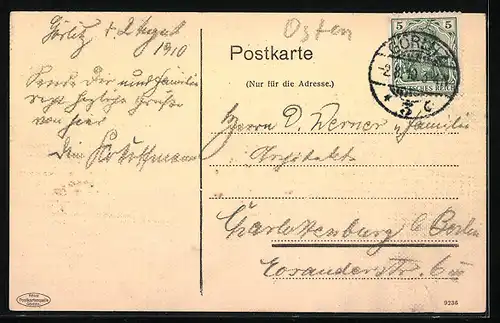 Görlitz d. 2 August
1910
Sende Dir und Familie
recht herzliche Grüße
von hier
Dein
Osten
Postkarte
(Nur für die Adresse.)
5 5
GÖRLITZ
DEUTSCHES REICH
Herrn D. Werner u. Familie
Architekt
Charlottenburg b. Berlin
Eosanderstr. 6
9236